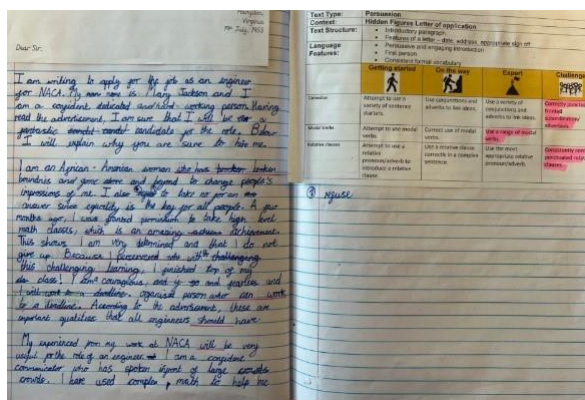 Hampton,
Virginia
July, 1953
Dear Sir,
I am writing to apply for the job as an engineer
for NACA. My name is Mary Jackson and I
am a confident dedicated hard working person. Having
read the advertisement, I am sure that I will be a
fantastic candidate for the role. Below
I will explain why you are sure to hire me.
I am an African-American woman who has broken
boundries and gone above and beyond to change people's
impressions of me. I also refuse to take
answer since equality is the key for all people. A few
months ago, I was granted permission to take high level
math classes, which is an amazing achievement.
This shows I am very determined and that I do not
give up. Because I persevered with challenging
this challenging learning, I finished top of my
class! I am courageous, and fearless and
I will a deadline. organised person who can work
to a deadline. According to the advertisement, these are
important qualities that all engineers should have.
My experienced from my work at NACA will be very
useful for the role of an engineer. I am a confident
communicator who has spoken infront of large crowds
crowds. I have used complex math to help me
Text Type: Persuasion
Context: Hidden Figures Letter of application
Text Structure: • Introductory paragraph
• Features of a letter – date, address, appropriate sign off
Language Features: • Persuasive and engaging introduction
• First person
• Consistent formal vocabulary
Getting started On the way Expert Challenge
Attempt to use a variety of sentence starters.
Use conjunctions and adverbs to link ideas.
Use a variety of conjunctions and adverbs to link ideas.
Modal verbs Attempt to use modal verbs. Correct use of modal verbs. Use a range of modal verbs.
Relative clauses Attempt to use a relative pronoun/adverb to introduce a relative clause.
Use a relative clause correctly in a complex sentence.
Use the most appropriate relative pronoun/adverb.
refuse